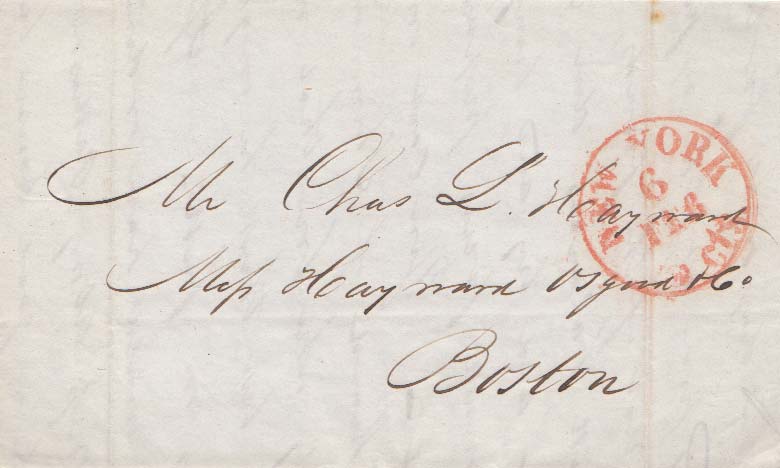 Mr Chas L. Hayward
Mess Hayward Osgood & Co
Boston
NEW YORK
6
FEB
10 cts